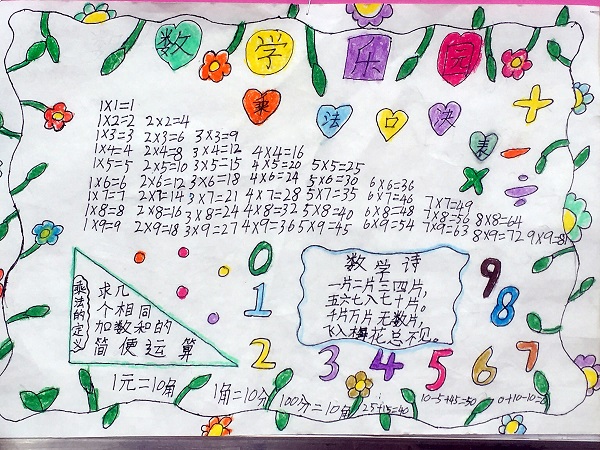 数学乐园
乘法口决表
1×1=1
1×2=2 2×2=4
1×3=3 2×3=6 3×3=9
1×4=4 2×4=8 3×4=12 4×4=16
1×5=5 2×5=10 3×5=15 4×5=20 5×5=25
1×6=6 2×6=12 3×6=18 4×6=24 5×6=30 6×6=36
1×7=7 2×7=14 3×7=21 4×7=28 5×7=35 6×7=46 7×7=49
1×8=8 2×8=16 3×8=24 4×8=32 5×8=40 6×8=48 7×8=56 8×8=64
1×9=9 2×9=18 3×9=27 4×9=36 5×9=45 6×9=54 7×9=63 8×9=72 9×9=81
+
-
×
÷
乘法的定义
求几
个相同
加数和的
简便运算
0
1
2
3
4
5
6
7
8
9
数学诗
一片二片三四片,
五六七八七十片。
千片万片无数片,
飞入梅花总不见。
1元=10角
1角=10分
100分=10角
25+15=40
10-5+45=50